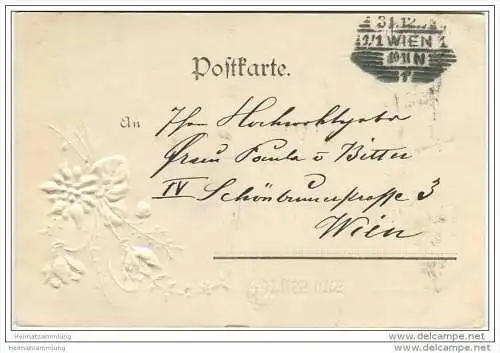 31.12.
1/1 WIEN 1
Postkarte.
An
Ihre Hochwohlgebor
Frau Paula v Bitter
IV Schönbrunnerstrasse 3
Wien
Heimatsammlung
Heimatsammlung
delcampe.net